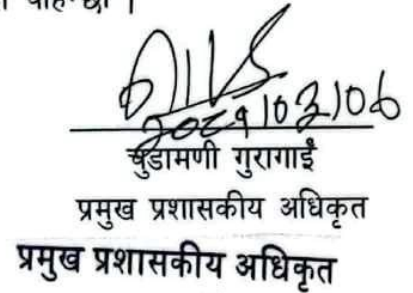 २०८१।०३।०६
चुडामणी गुरागाईं
प्रमुख प्रशासकीय अधिकृत
प्रमुख प्रशासकीय अधिकृत